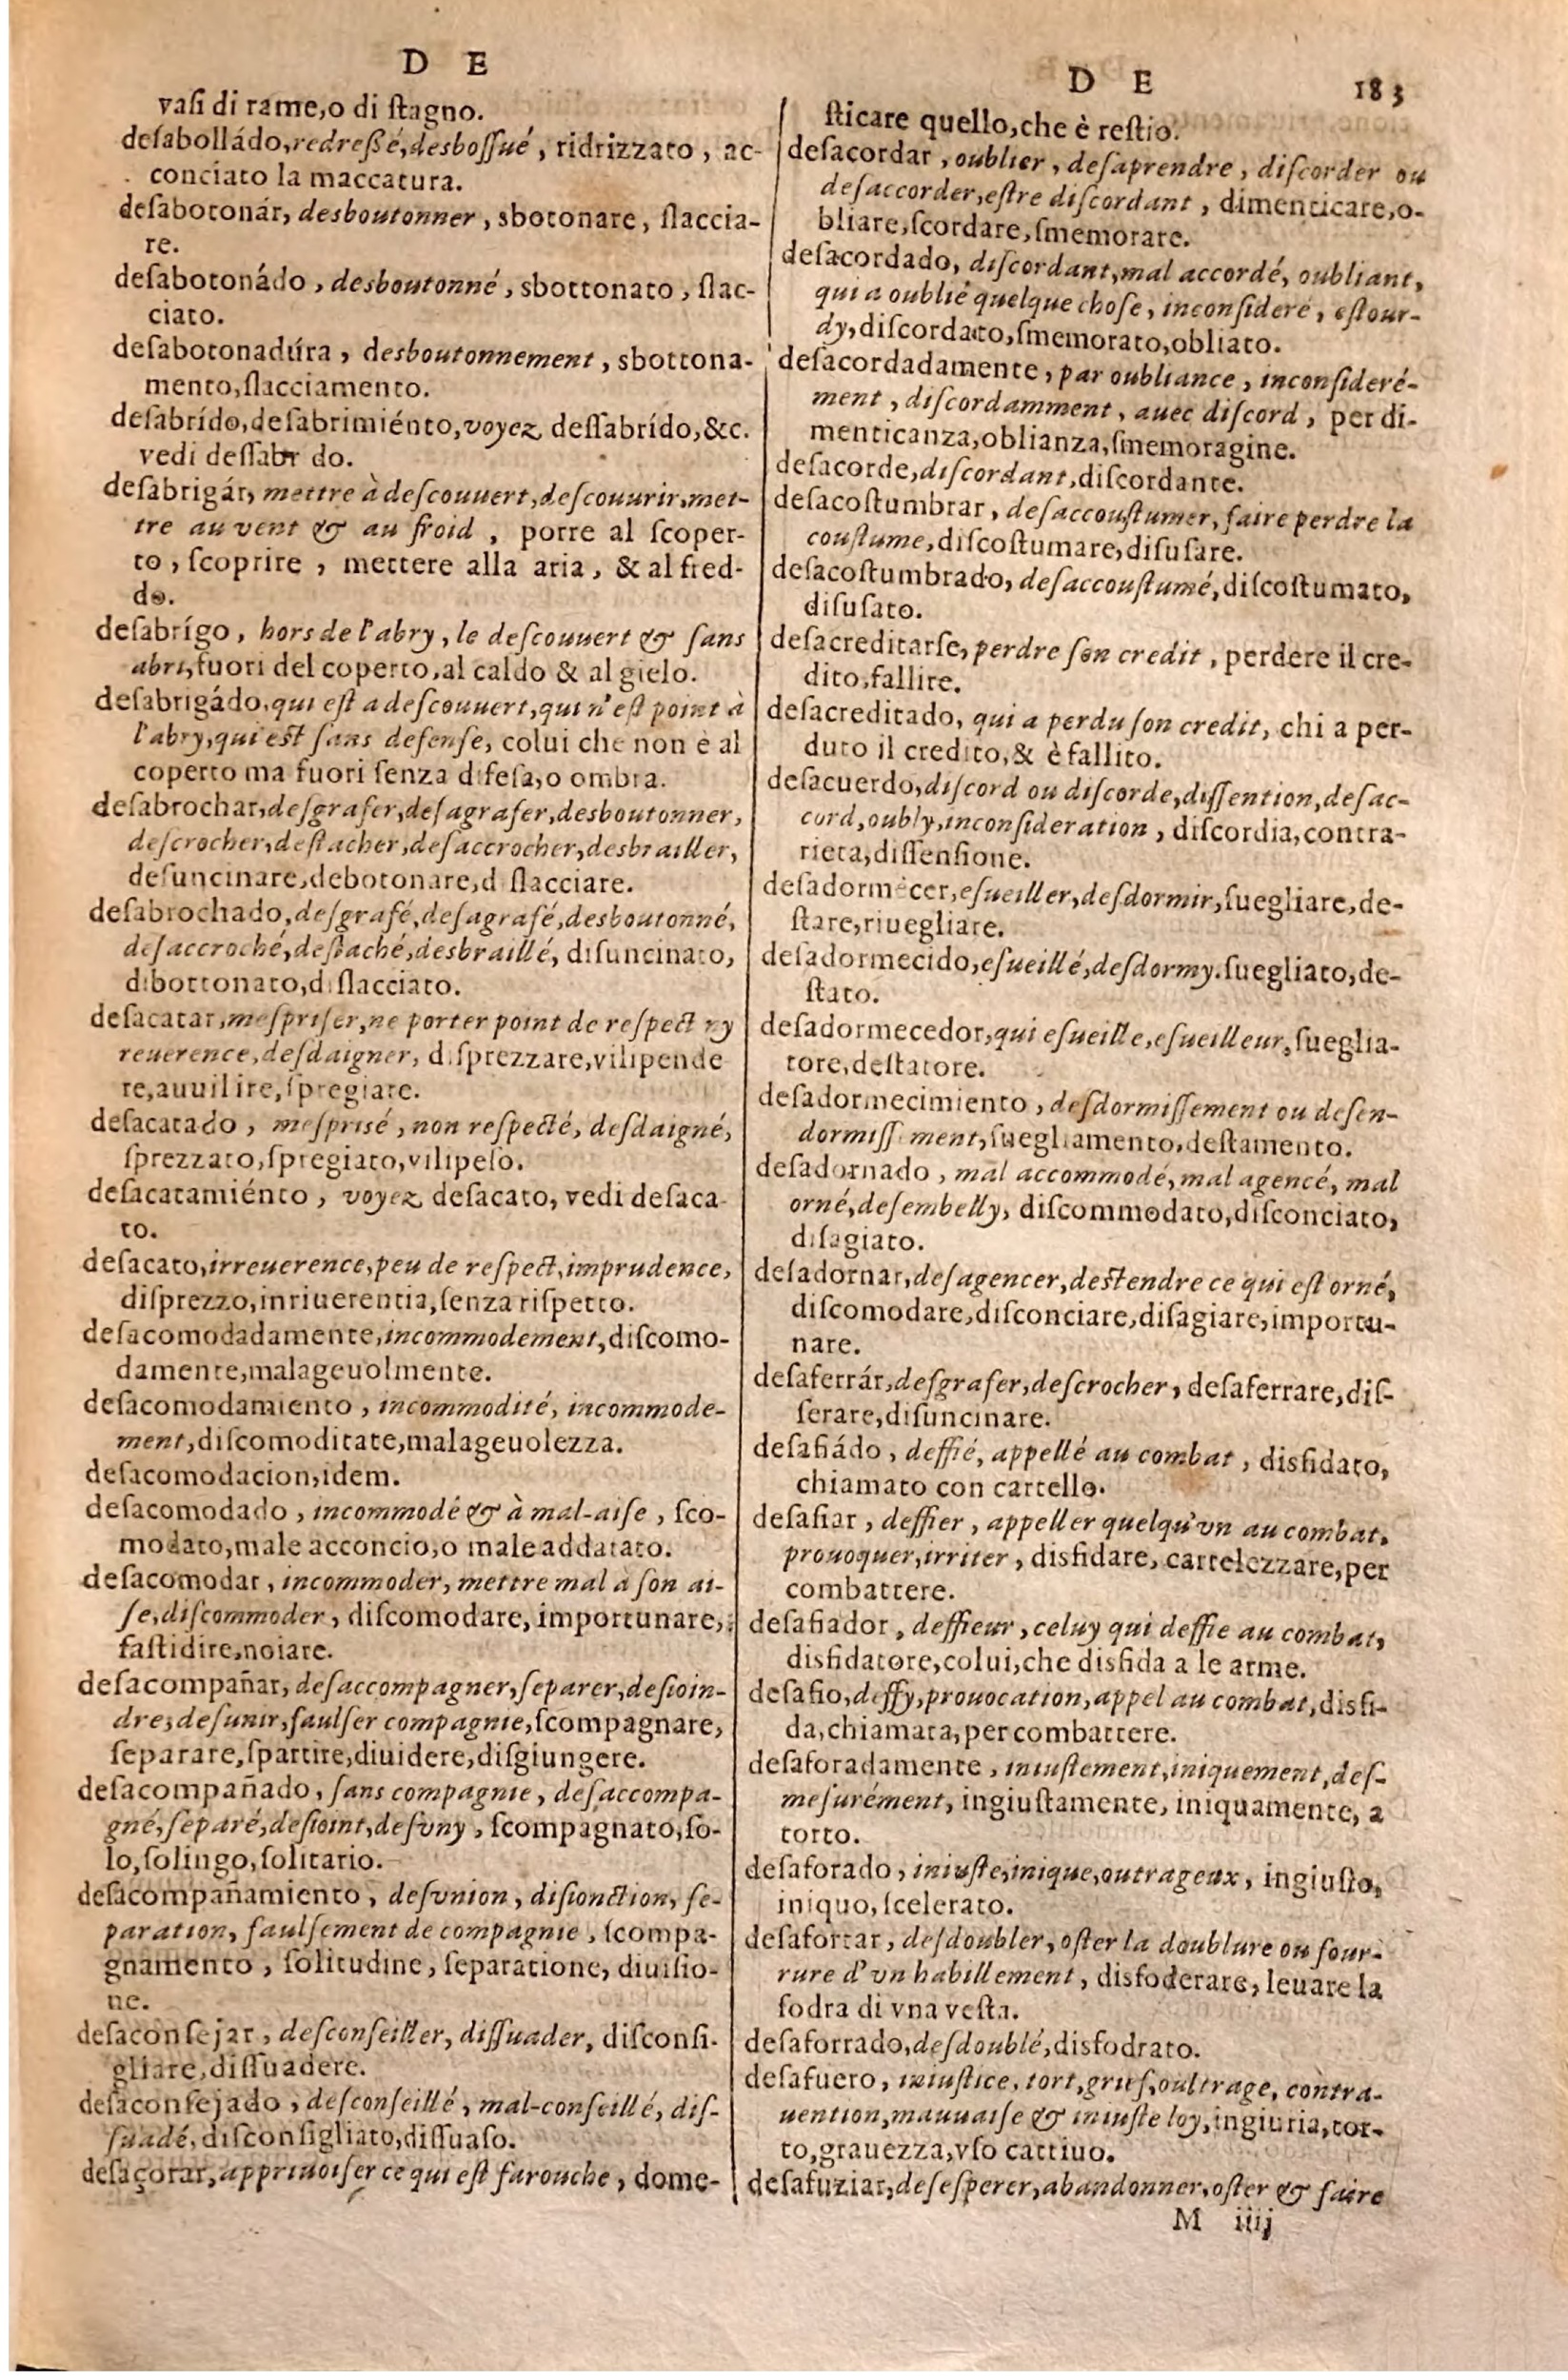 D E
vaſi di rame,o di ſtagno.
deſabolládo,redreßé,desboſſué, ridrizzato, ac-
conciato la maccatura.
deſabotonár, desboutonner, sbotonare, ſlaccia-
re.
deſabotonádo, desboutonné, sbottonato, ſlac-
ciato.
deſabotonadúra, desboutonnement, sbottona-
mento,ſlacciamento.
deſabrído,deſabrimiénto,voyez deſſabrído,&c.
vedi deſſabr do.
deſabrigár, mettre à deſcouuert,deſcouurir,met-
tre au vent & au froid, porre al ſcoper-
to, ſcoprire, mettere alla aria, & al fred-
do.
deſabrígo, hors de l'abry, le deſcouuert & ſans
abri,fuori del coperto,al caldo & al gielo.
deſabrigádo,qui eſt a deſcouuert,qui n'eſt point à
l'abry,qui eſt ſans defenſe, colui che non è al
coperto ma fuori ſenza difeſa,o ombra.
deſabrochar,deſgrafer,deſagrafer,desboutonner,
deſcrocher,deſtacher,deſaccrocher,desbrailler,
deſuncinare,debotonare,d ſlacciare.
deſabrochado,deſgrafé,deſagrafé,desboutonné,
deſaccroché,deſtaché,desbraillé, diſuncinato,
dibottonato,diſlacciato.
deſacatar,meſpriſer,ne porter point de reſpect ny
reuerence,deſdaigner, diſprezzare,vilipende
re,auuilire,ſpregiare.
deſacatado, meſprisé, non reſpecté, deſdaigné,
ſprezzato,ſpregiato,vilipeſo.
deſacatamiénto, voyez deſacato, vedi deſaca
to.
deſacato,irreuerence,peu de reſpect,imprudence,
diſprezzo,inriuerentia,ſenza riſpetto.
deſacomodadamente,incommodement,diſcomo-
damente,malageuolmente.
deſacomodamiento, incommodité, incommode-
ment,diſcomoditate,malageuolezza.
deſacomodacion,idem.
deſacomodado, incommodé & à mal-aiſe, ſco-
modato,male acconcio,o male addatato.
deſacomodar, incommoder, mettre mal à ſon ai-
ſe,diſcommoder, diſcomodare, importunare,
faſtidire,noiare.
deſacompañar, deſaccompagner,ſeparer,deſioin-
dre,deſunir,faulſer compagnie,ſcompagnare,
ſeparare,ſpartire,diuidere,diſgiungere.
deſacompañado, ſans compagnie, deſaccompa-
gné,ſeparé,deſioint,deſvny, ſcompagnato,ſo-
lo,ſolingo,ſolitario.
deſacompañamiento, deſvnion, diſionction, ſe-
paration, faulſement de compagnie, ſcompa-
gnamento, ſolitudine, ſeparatione, diuiſio-
ne.
deſaconſejar, deſconſeiller, diſſuader, diſconſi-
gliare,diſſuadere.
deſaconſejado, deſconſeillé, mal-conſeillé, diſ-
ſuadé,diſconſigliato,diſſuaſo.
deſaçorar,appriuoiſer ce qui eſt farouche, dome-
D E 183
ſticare quello,che è reſtio.
deſacordar, oublier, deſaprendre, diſcorder ou
deſaccorder,eſtre diſcordant, dimenticare,o-
bliare,ſcordare,ſmemorare.
deſacordado, diſcordant,mal accordé, oubliant,
qui a oublié quelque choſe, inconſideré, eſtour-
dy,diſcordato,ſmemorato,obliato.
deſacordadamente, par oubliance, inconſideré-
ment, diſcordamment, auec diſcord, per di-
menticanza,oblianza,ſmemoragine.
deſacorde,diſcordant,diſcordante.
deſacoſtumbrar, deſaccouſtumer, faire perdre la
couſtume,diſcoſtumare,diſuſare.
deſacoſtumbrado, deſaccouſtumé,diſcoſtumato,
diſuſato.
deſacreditarſe,perdre ſon credit, perdere il cre-
dito,fallire.
deſacreditado, qui a perdu ſon credit, chi a per-
duto il credito,& è fallito.
deſacuerdo,diſcord ou diſcorde,diſſention,deſac-
cord,oubly,inconſideration, diſcordia,contra-
rieta,diſſenſione.
deſadormécer,eſueiller,deſdormir,ſuegliare,de-
ſtare,riuegliare.
deſadormecido,eſueillé,deſdormy.ſuegliato,de-
ſtato.
deſadormecedor,qui eſueille,eſueilleur,ſueglia-
tore,deſtatore.
deſadormecimiento, deſdormiſſement ou deſen-
dormiſſ ment,ſuegliamento,deſtamento.
deſadornado, mal accommodé,mal agencé, mal
orné,deſembelly, diſcommodato,diſconciato,
diſagiato.
deſadornar,deſagencer,deſtendre ce qui eſt orné,
diſcomodare,diſconciare,diſagiare,importu-
nare.
deſaferrár,deſgrafer,deſcrocher, deſaferrare,diſ-
ferare,diſuncinare.
deſafiádo, deffié, appellé au combat, disfidato,
chiamato con cartello.
deſafiar, deffier, appeller quelqu'vn au combat,
prouoquer,irriter, disfidare, cartelezzare,per
combattere.
deſafiador, deffieur, celuy qui deffie au combat,
disfidatore,colui,che disfida a le arme.
deſafio,deffy,prouocation,appel au combat,disfi-
da,chiamata,per combattere.
deſaforadamente, iniuſtement,iniquement,deſ-
meſurément, ingiuſtamente, iniquamente, a
torto.
deſaforado, iniuſte,inique,outrageux, ingiuſto,
iniquo,ſcelerato.
deſaforrar, deſdoubler, oſter la doublure ou four-
rure d'vn habillement, disfoderare, leuare la
fodra di vna veſta.
deſaforrado,deſdoublé,disfodrato.
deſafuero, iniuſtice, tort,grief,oultrage, contra-
uention,mauuaiſe & iniuſte loy,ingiuria,tor-
to,grauezza,vſo cattiuo.
deſafuziar,deſeſperer,abandonner,oſter & faire
M iiij